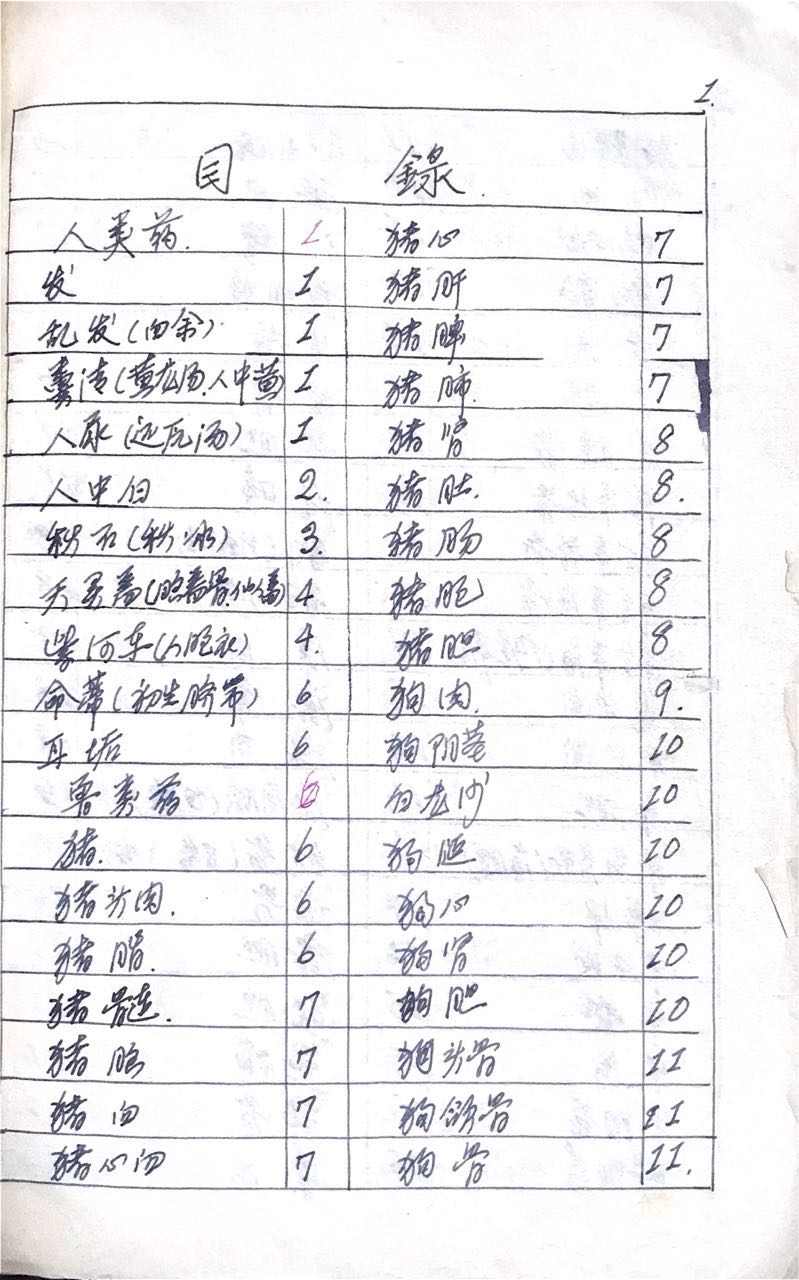 1.
目 錄.
人类药. 1
发 1
乱发(血余) 1
粪清(黄龙汤.人中黄) 1
人尿(还元汤) 1
人中白 2.
秋石(秋冰) 3.
天灵蓋(脑蓋骨.仙人蓋) 4
紫河车(人胞衣) 4.
命蒂(初生脐带) 6
耳垢 6
兽类药 6
猪. 6
猪头肉. 6
猪脂. 6
猪骨遀. 7
猪脑 7
猪血 7
猪心血 7
猪心 7
猪肝 7
猪脾 7
猪肺. 7
猪肾 8
猪肚. 8.
猪肠 8
猪脬 8
猪胆 8
狗肉. 9.
狗阴茎 10
白龙沙 10
狗 10
狗心 10
狗肾 10
狗胆 10
狗头骨 11
狗颌骨 11
狗骨 11.